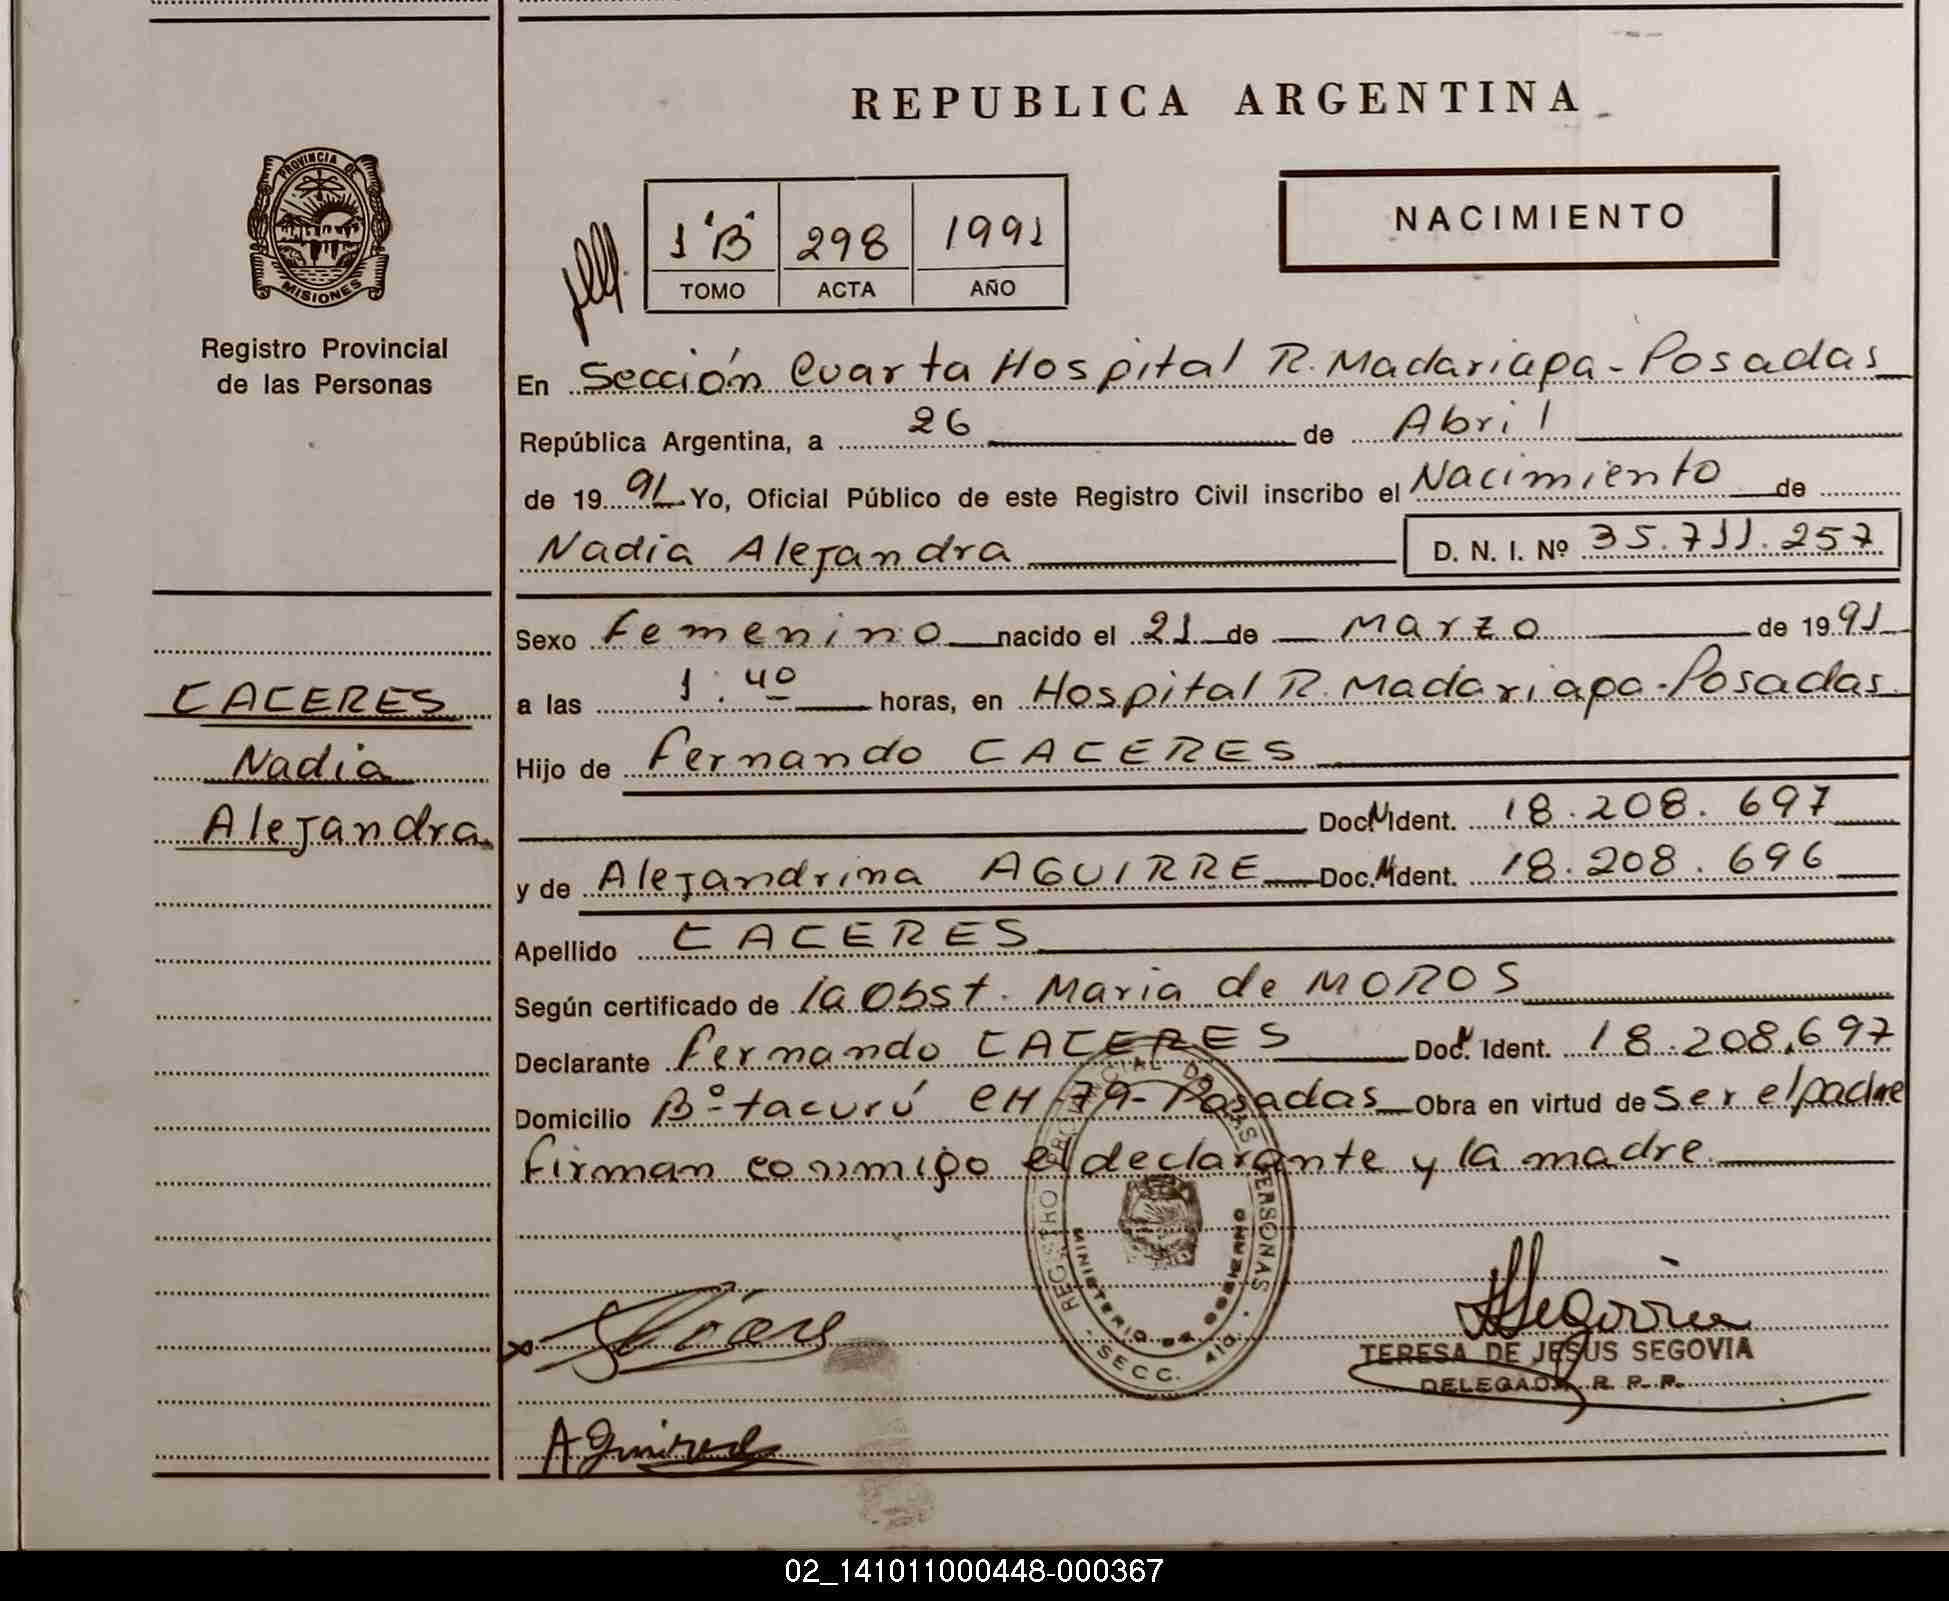 REPUBLICA ARGENTINA
PROVINCIA DE
MISIONES
Registro Provincial
de las Personas
1 "B" 298 1991
TOMO ACTA AÑO
NACIMIENTO
En Sección Cuarta Hospital R. Madariaga - Posadas
República Argentina, a 26 de Abril
de 19 91 Yo, Oficial Público de este Registro Civil inscribo el Nacimiento de
Nadia Alejandra D. N. I. Nº 35.711.257
Sexo Femenino nacido el 21 de Marzo de 19 91
a las 1:40 horas, en Hospital R. Madariaga - Posadas
Hijo de Fernando CACERES
Doc. N Ident. 18.208.697
y de Alejandrina AGUIRRE Doc. N Ident. 18.208.696
Apellido CACERES
Según certificado de la Obst. Maria de MOROS
Declarante Fernando CACERES Doc. N Ident. 18.208.697
Domicilio Bº tacurú CH 79 - Posadas Obra en virtud de Ser el padre
firman conmigo el declarante y la madre
CACERES
Nadia
Alejandra
REGISTRO PROVINCIAL DE LAS PERSONAS
MINISTERIO DE GOBIERNO
SECC. 4ta.
Segovia
TERESA DE JESUS SEGOVIA
DELEGADA R. P. P.
02_141011000448-000367